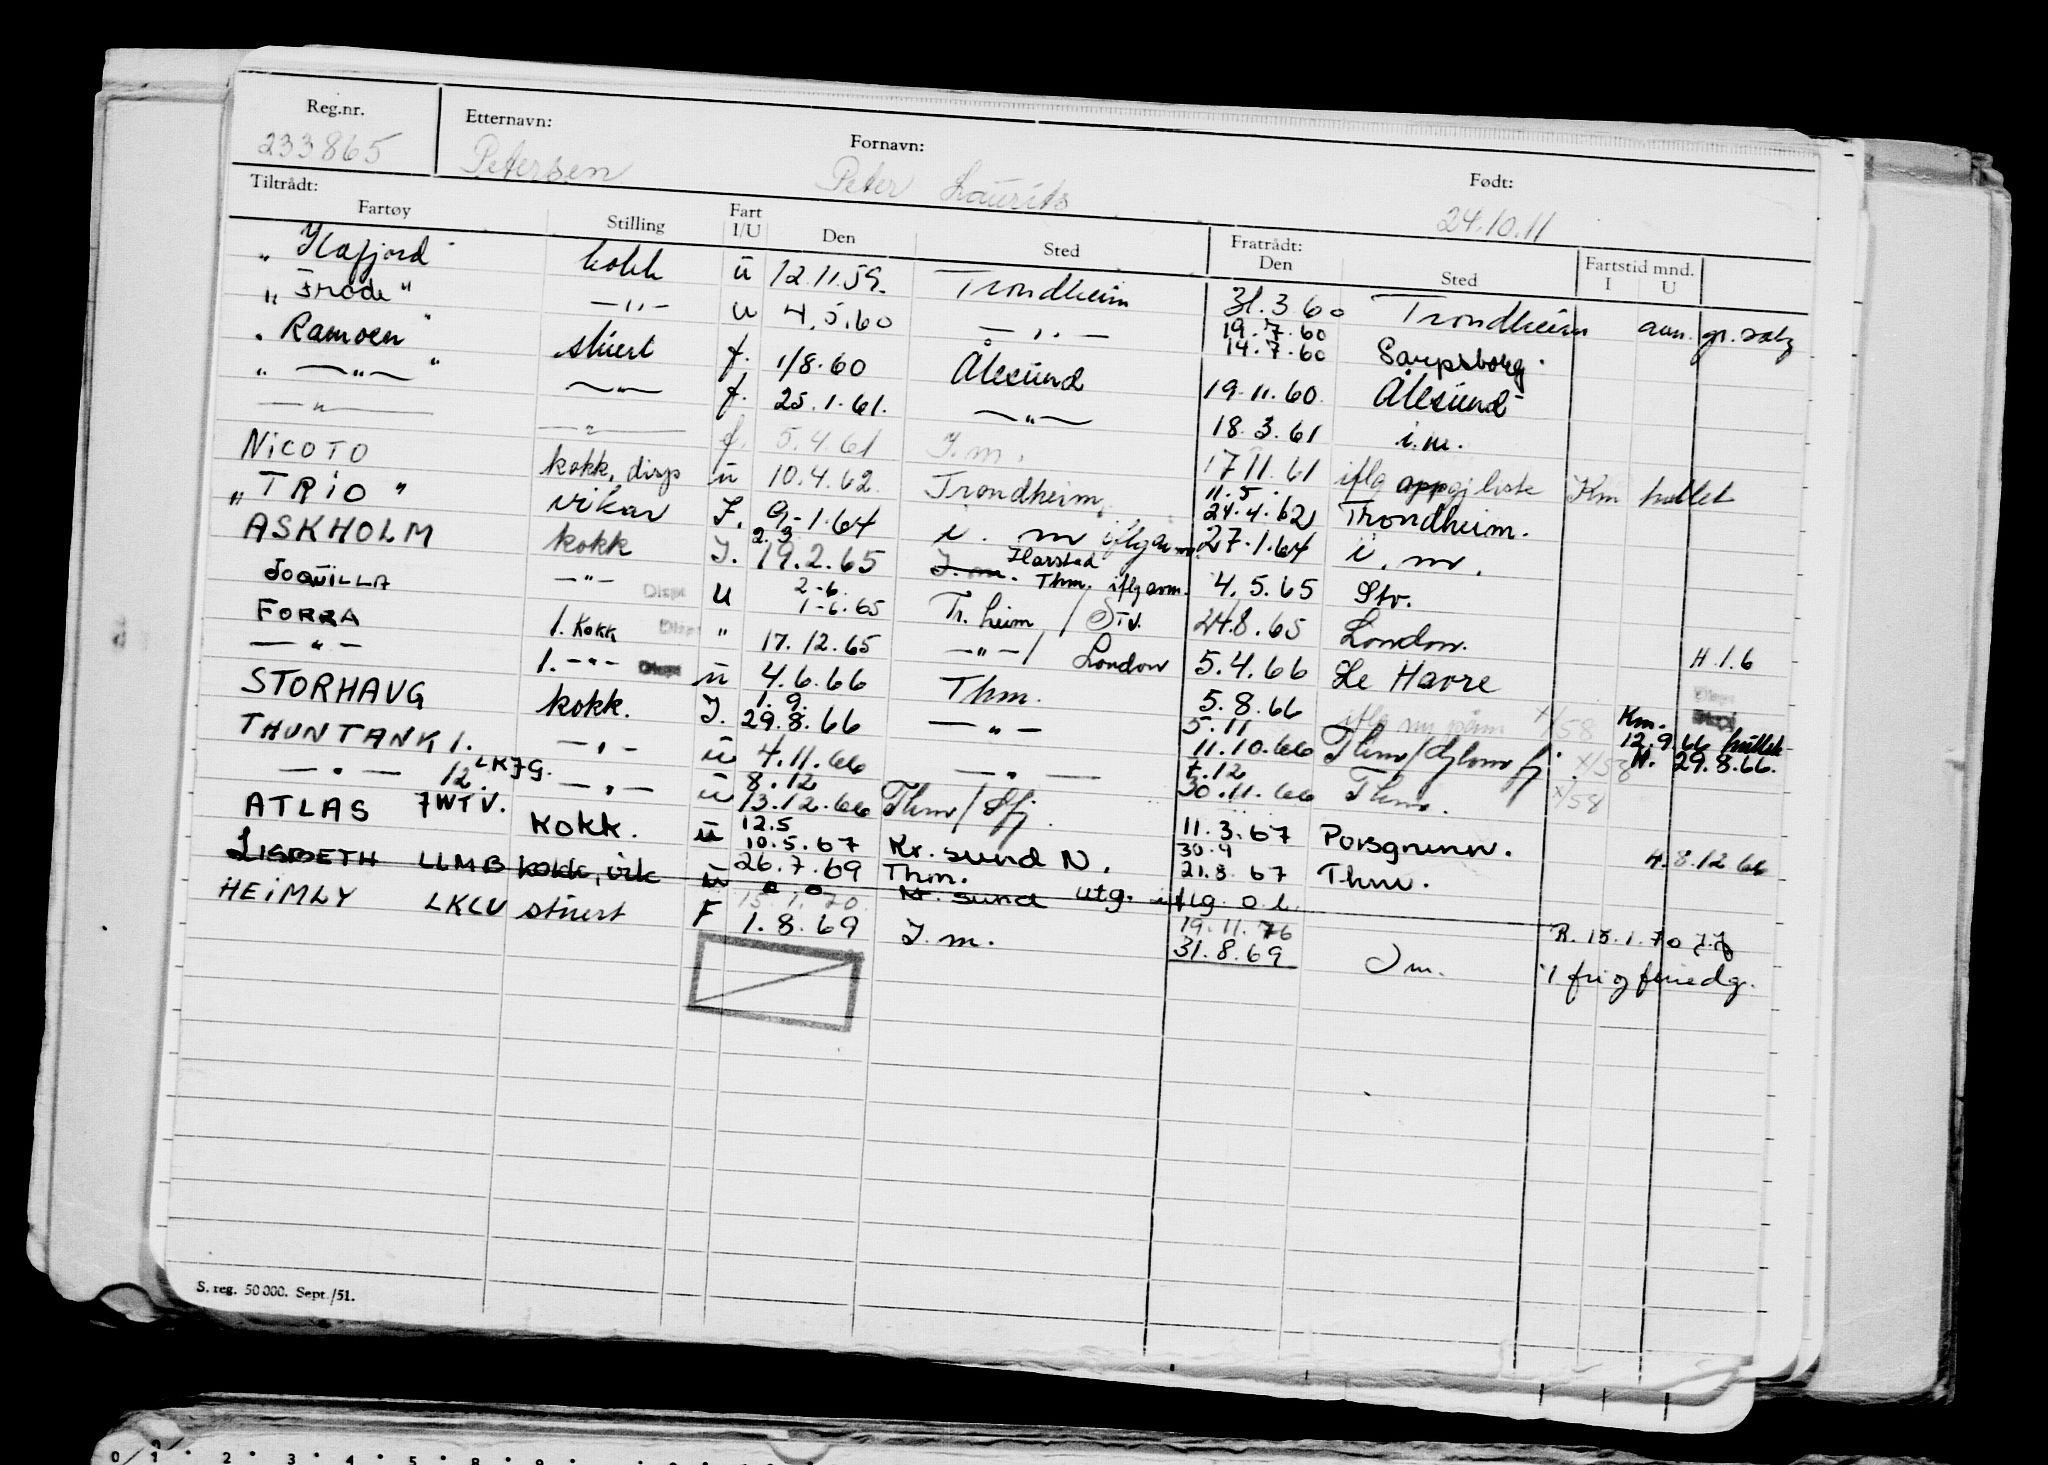 Reg.nr. Etternavn: Fornavn: Født:
233865 Petersen Peter Laurits 24.10.11
Tiltrådt: Fratrådt: Fartstid mnd.
Fartøy Stilling Fart I/U Den Sted Den Sted I U
" Ilafjord " kokk u 12.11.59. Trondheim 31.3 60 Trondheim
" Frode " — " — u 4.5.60 — " — 19.7.60 14.7.60 Sarpsborg.
" Ramoen " stuert f. 1/8.60 Ålesund 19.11.60. Ålesund
" — " — " — " — f. 25.1.61. — " — 18.3.61 i.m.
— " — — " — f. 5.4.61 I.m. 17 11.61 iflg oppgj liste Km hullet
NICOTO kokk, disp u 10.4.62. Trondheim. 11.5. 24.4.62 Trondheim.
" TRIO " vikar I. 9.1.64 i. m 27.1.64 i. m.
ASKHOLM kokk I. 2.3 19.2.65 I. m. Harstad Thm. iflg avm. 4.5.65 Stv.
JOQUILLA — " — Disp U 2-6. 1-6.65 Tr.heim / Stv. 24.8.65 London.
FORRA 1. Kokk Disp " 17.12.65 — " — / London 5.4.66 Le Havre H.1.6
— " — 1. — " — Disp u 4.6.66 Thm. 5.8.66 x/58 Disp
STORHAUG kokk. I. 1.9. 29.8.66 — " — 5.11 11.10.66 Thm/Glomfj. x/58 Km. 12.9 66 hullet H. 29.8.66.
THUNTANK 1. — " — u 4.11.66 — " — t.12 30.11.66 Thm. x/58
— " — 12. LKJG. — " — u 8.12 13.12.66 Thm/ 11.3.67 Porsgrunn. H.8.12 66
ATLAS JWTV. kokk. u 12.5 10.5.67 Kr.sund N. 30.9 21.8.67 Thm.
LISBETH LLMB kokk, vik u 26.7.69 15.1.70. Thm. Kr.sund utg. iflg o.l. 19.11.76 R. 15.1.70
HEIMLY LKLU stuert F 1.8.69 I.m. 31.8.69 I m.
S. reg. 50 000. Sept./51.
0 1 2 3 4 5 8 9